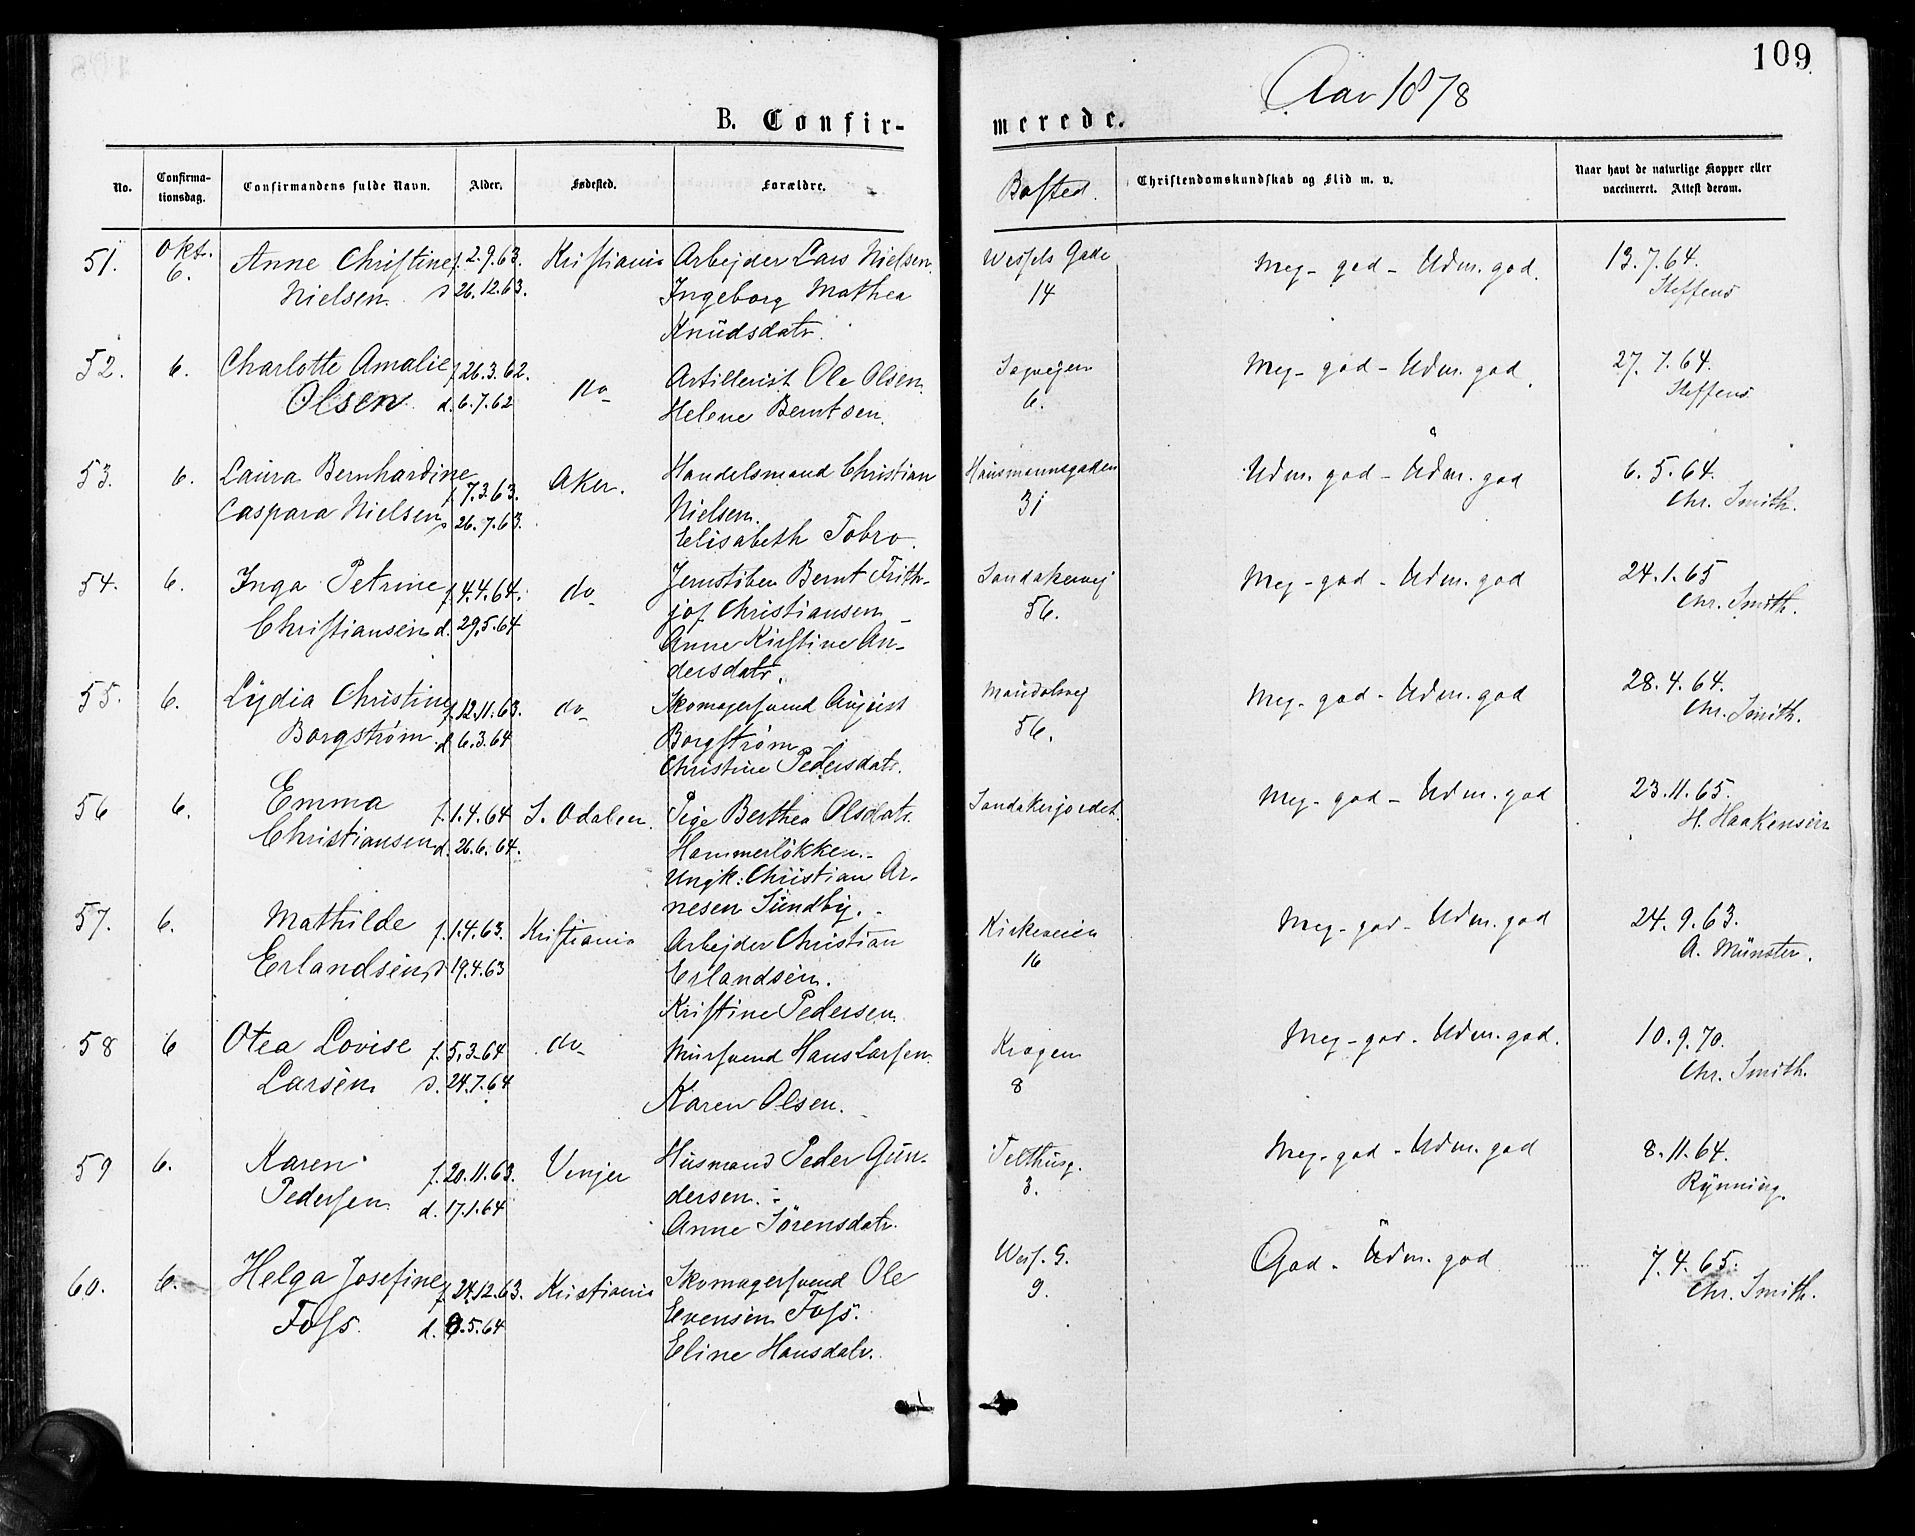 109
Aar 1878
B. Confir-
merede.
No.
Confirma-
tionsdag.
Confirmandens fulde Navn.
Alder.
Fødested.
Forældre.
Bosted.
Christendomskundskab og Flid m. v.
Naar havt de naturlige Kopper eller
vaccineret. Attest derom.
51. Okt. Anne Christine f. 2.9.63. Kristiania Arbejder Lars Nielsen. Wessels Gade Meg. god - Udm. god. 13.7.64.
6. Nielsen d 26.12.63. Ingeborg Mathea 14 Steffens
Knudsdatr.
52. 6. Charlotte Amalie f. 26.3.62. do Artillerist Ole Olsen. Sagvejen Meg. god - Udm. god 27.7.64.
Olsen. d. 6.7.62 Helene Berntsen. 6. Steffens
53. 6. Laura Bernhardine f. 7.3.63. Aker. Handelsmand Christian Hausmannsgaden Udm. god - Udm. god 6.5.64.
Caspara Nielsen d 26.7.63. Nielsen. 31 Chr. Smith.
Elisabeth Tobro.
54. 6. Inga Petrine f. 4.4.64. do Jernstøber Bernt Frith- Sandakervej Meg. god - Udm. god 24.1.65
Christiansen d. 29.5.64 jof Christiansen 56. Chr. Smith.
Anne Kirstine An-
dersdatr.
55. 6. Lydia Christine f. 12.11.63. do Skomagersvend August Meg. god - Udm. god 28.4.64.
Borgstrøm d. 6.3.64 Borgstrøm 56. Chr. Smith.
Christine Pedersdatr.
56 6. Emma f. 1.4.64 S. Odalen. Pige Berthea Olsdatr. Sandakerjordet Meg. god - Udm. god 23.11.65.
Christiansen d. 26.6.64. Hammerløkken. H. Haakensen
Ungk: Christian Ar-
nesen Sundby.
57. 6. Mathilde f. 1.4.63. Kristiania Arbejder Christian Kirkeveien Meg. god - Udm. god 24.9.63.
Erlandsen d 19.4.63 Erlandsen. 16 A. Münster.
Kristine Pedersen.
58 6 Otea Lovise f. 5.3.64 do Mursvend Hans Larsen. Kragen Meg. god - Udm. god. 10.9.70.
Larsen d. 24.7.64 Karen Olsen. 8 Chr. Smith.
59 6. Karen f. 20.11.63. Vinjer Husmand Peder Gun- Telthusg. Meg. god - Udm. god 8.11.64.
Pedersen d. 17.1.64 dersen. 3. Rynning.
Anne Sørensdatr.
60. 6. Helga Josefine f. 24.12.63. Kristiania Skomagersvend Ole Wes. G. God - Udm. god 7.4.65.
Foss. d. 8.5.64 Evensen Foss. 9. Chr. Smith.
Eline Hansdatr.